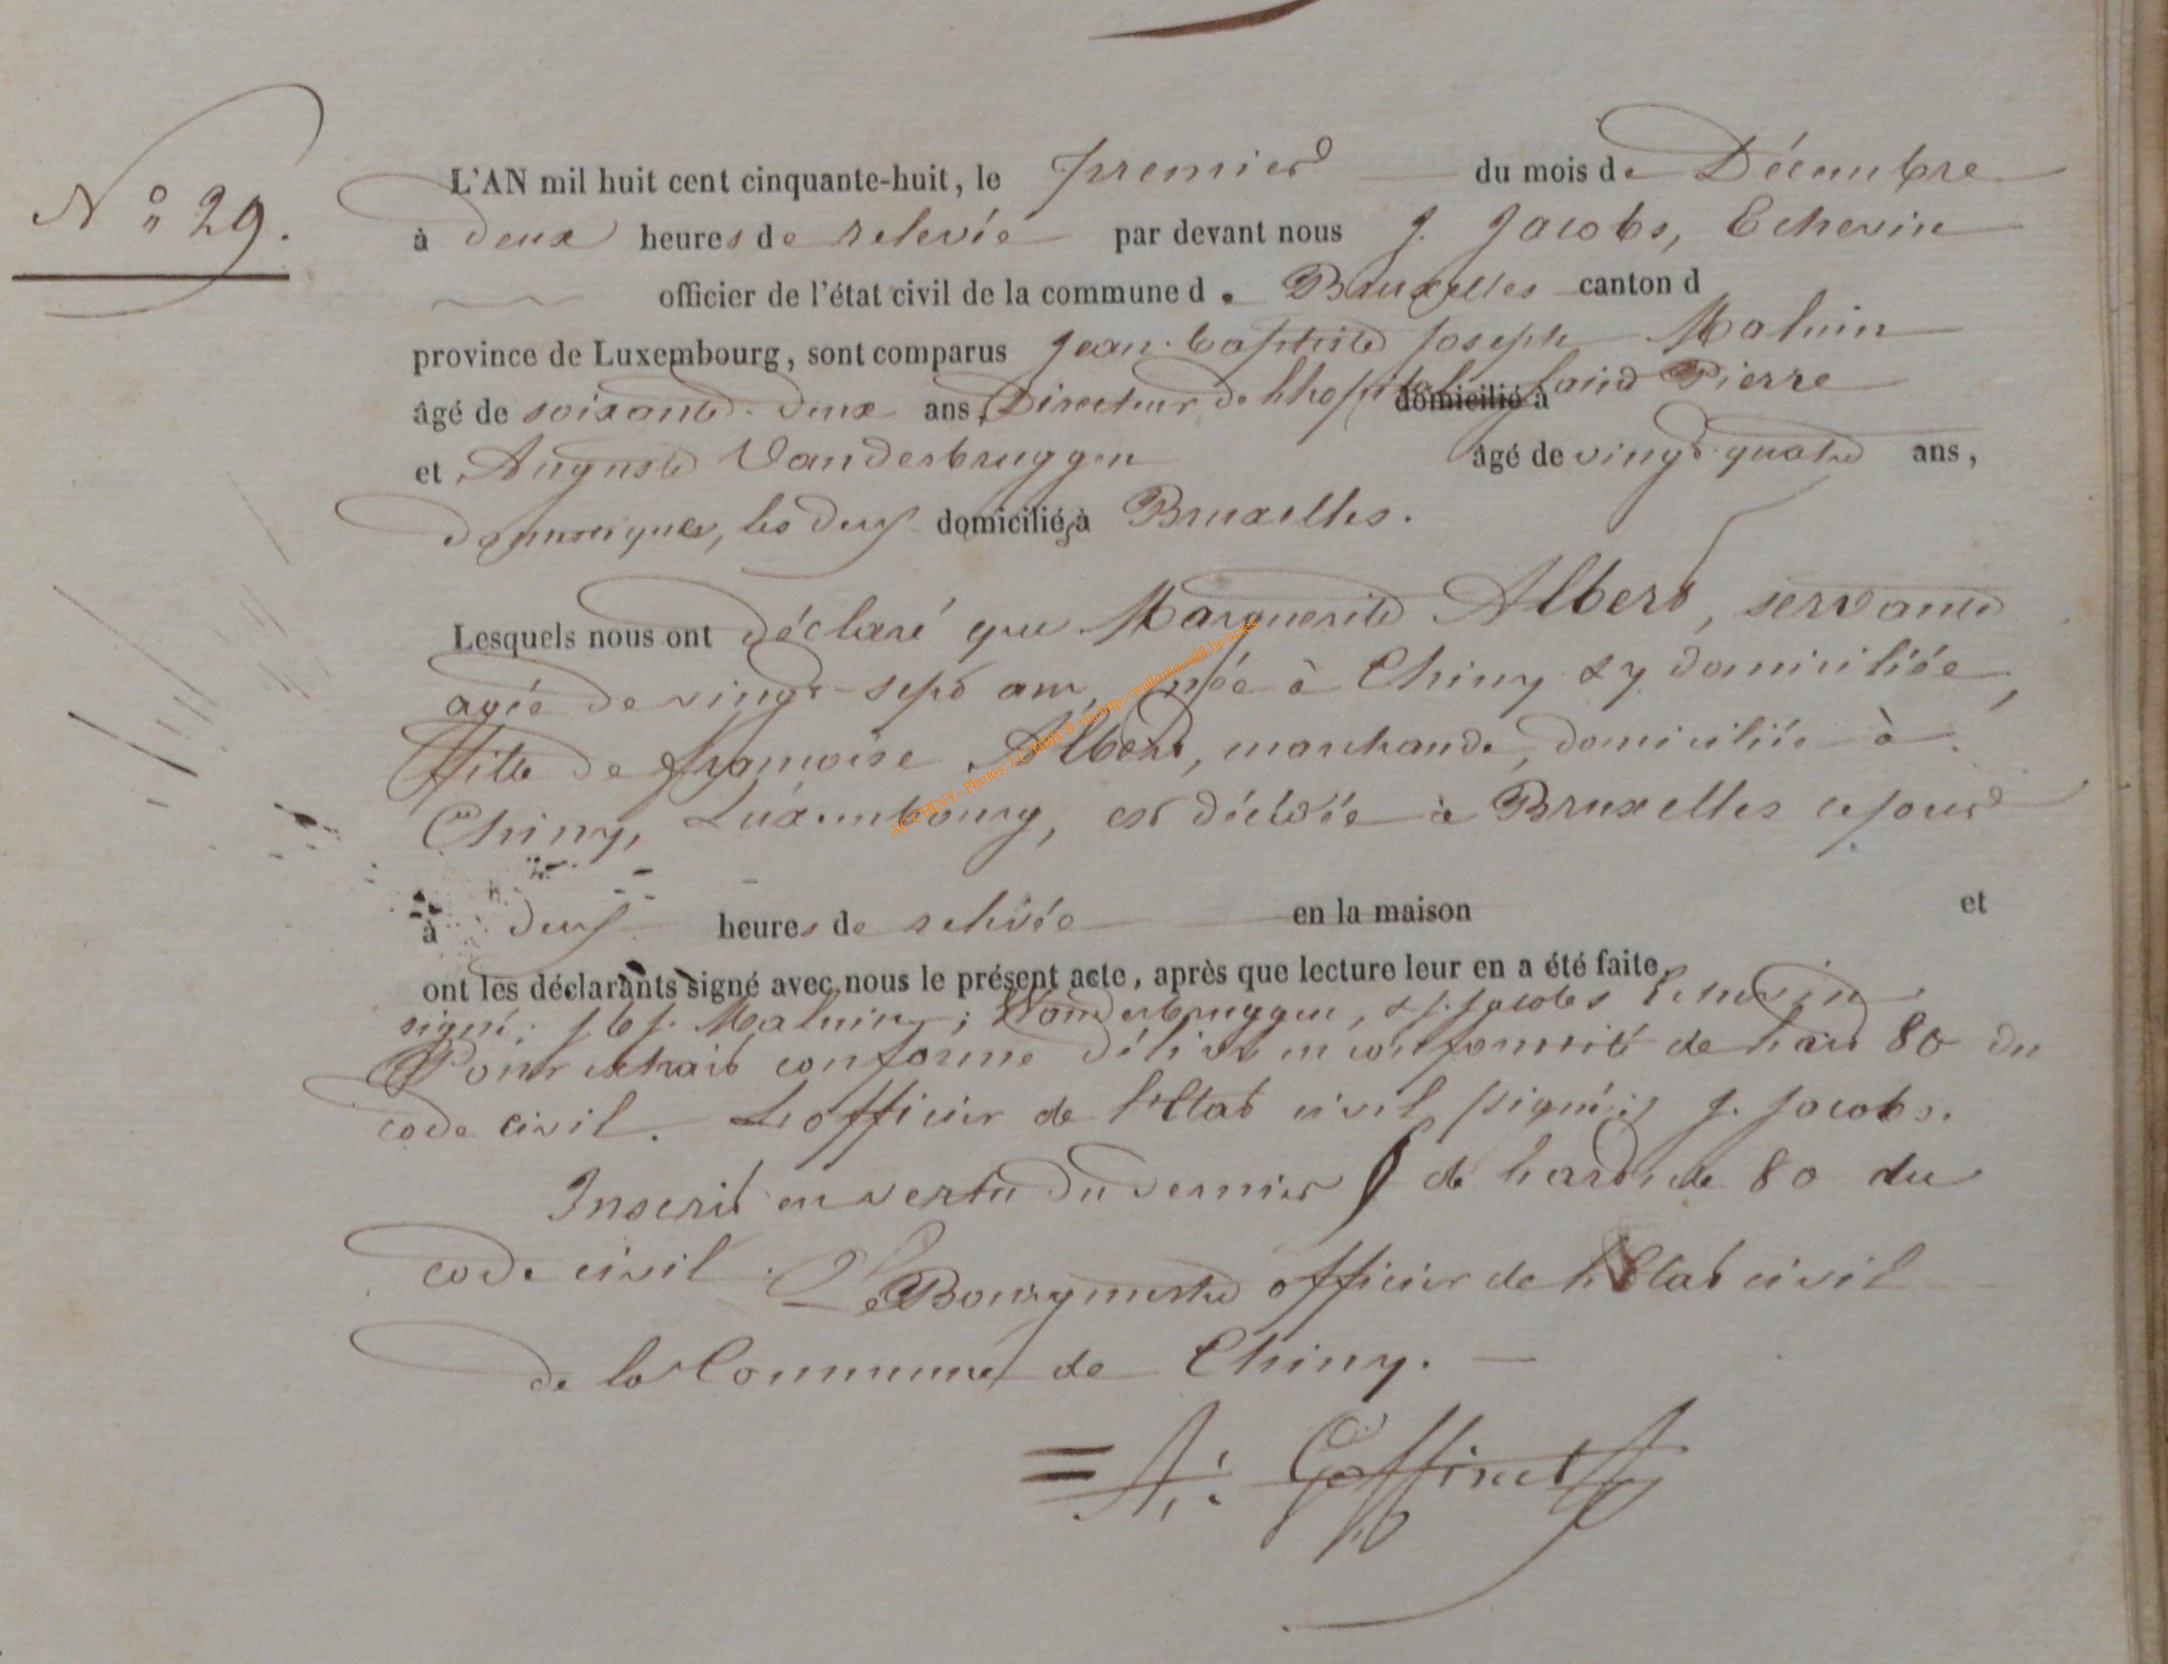 N° 29.
L'AN mil huit cent cinquante-huit, le premier du mois de Décembre
à deux heures de relevée par devant nous J. Jacobs, Echevin
officier de l'état civil de la commune de Bruxelles canton d
province de Luxembourg, sont comparus Jean-baptiste Joseph Maluin
âgé de soixante-deux ans, Directeur de l'hopital domicilié à Saint Pierre
et Auguste Vanderbruggen âgé de vingt-quatre ans,
les deux domiciliés à Bruxelles.
Lesquels nous ont déclaré que Marguerite Albert, servante
agée de vingt-sept ans, née à Chiny & y domiciliée,
fille de françoise Albert, marchande, domiciliée à
Chiny, Luxembourg, est décédée à Bruxelles ce jour
à deux heures de relevée en la maison et
ont les déclarants signé avec nous le présent acte, après que lecture leur en a été faite.
signé: J. b. J. Maluin; Vanderbruggen, & J. Jacobs Echevin
Pour extrait conforme délivré en conformité de l'art 80 du
code civil. L'officier de l'Etat civil, (signé) J. Jacobs.
Inscrit en vertu du dernier § de l'article 80 du
code civil. Le Bourgmestre officier de l'Etat civil
de la Commune de Chiny.
A: Goffinet